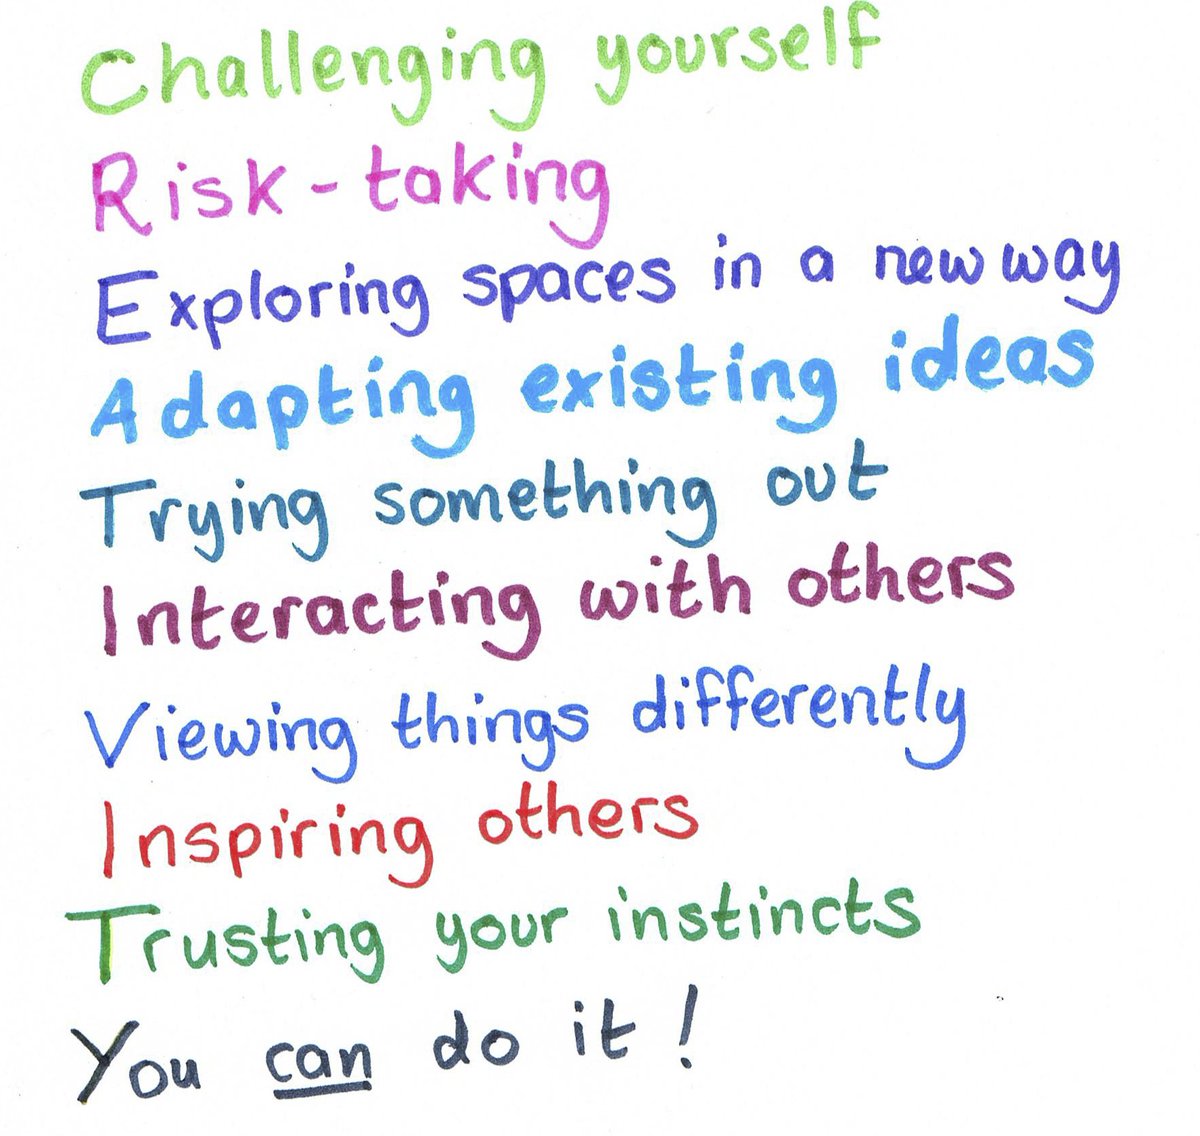 Challenging yourself
Risk-taking
Exploring spaces in a new way
Adapting existing ideas
Trying something out
Interacting with others
Viewing things differently
Inspiring others
Trusting your instincts
You can do it!